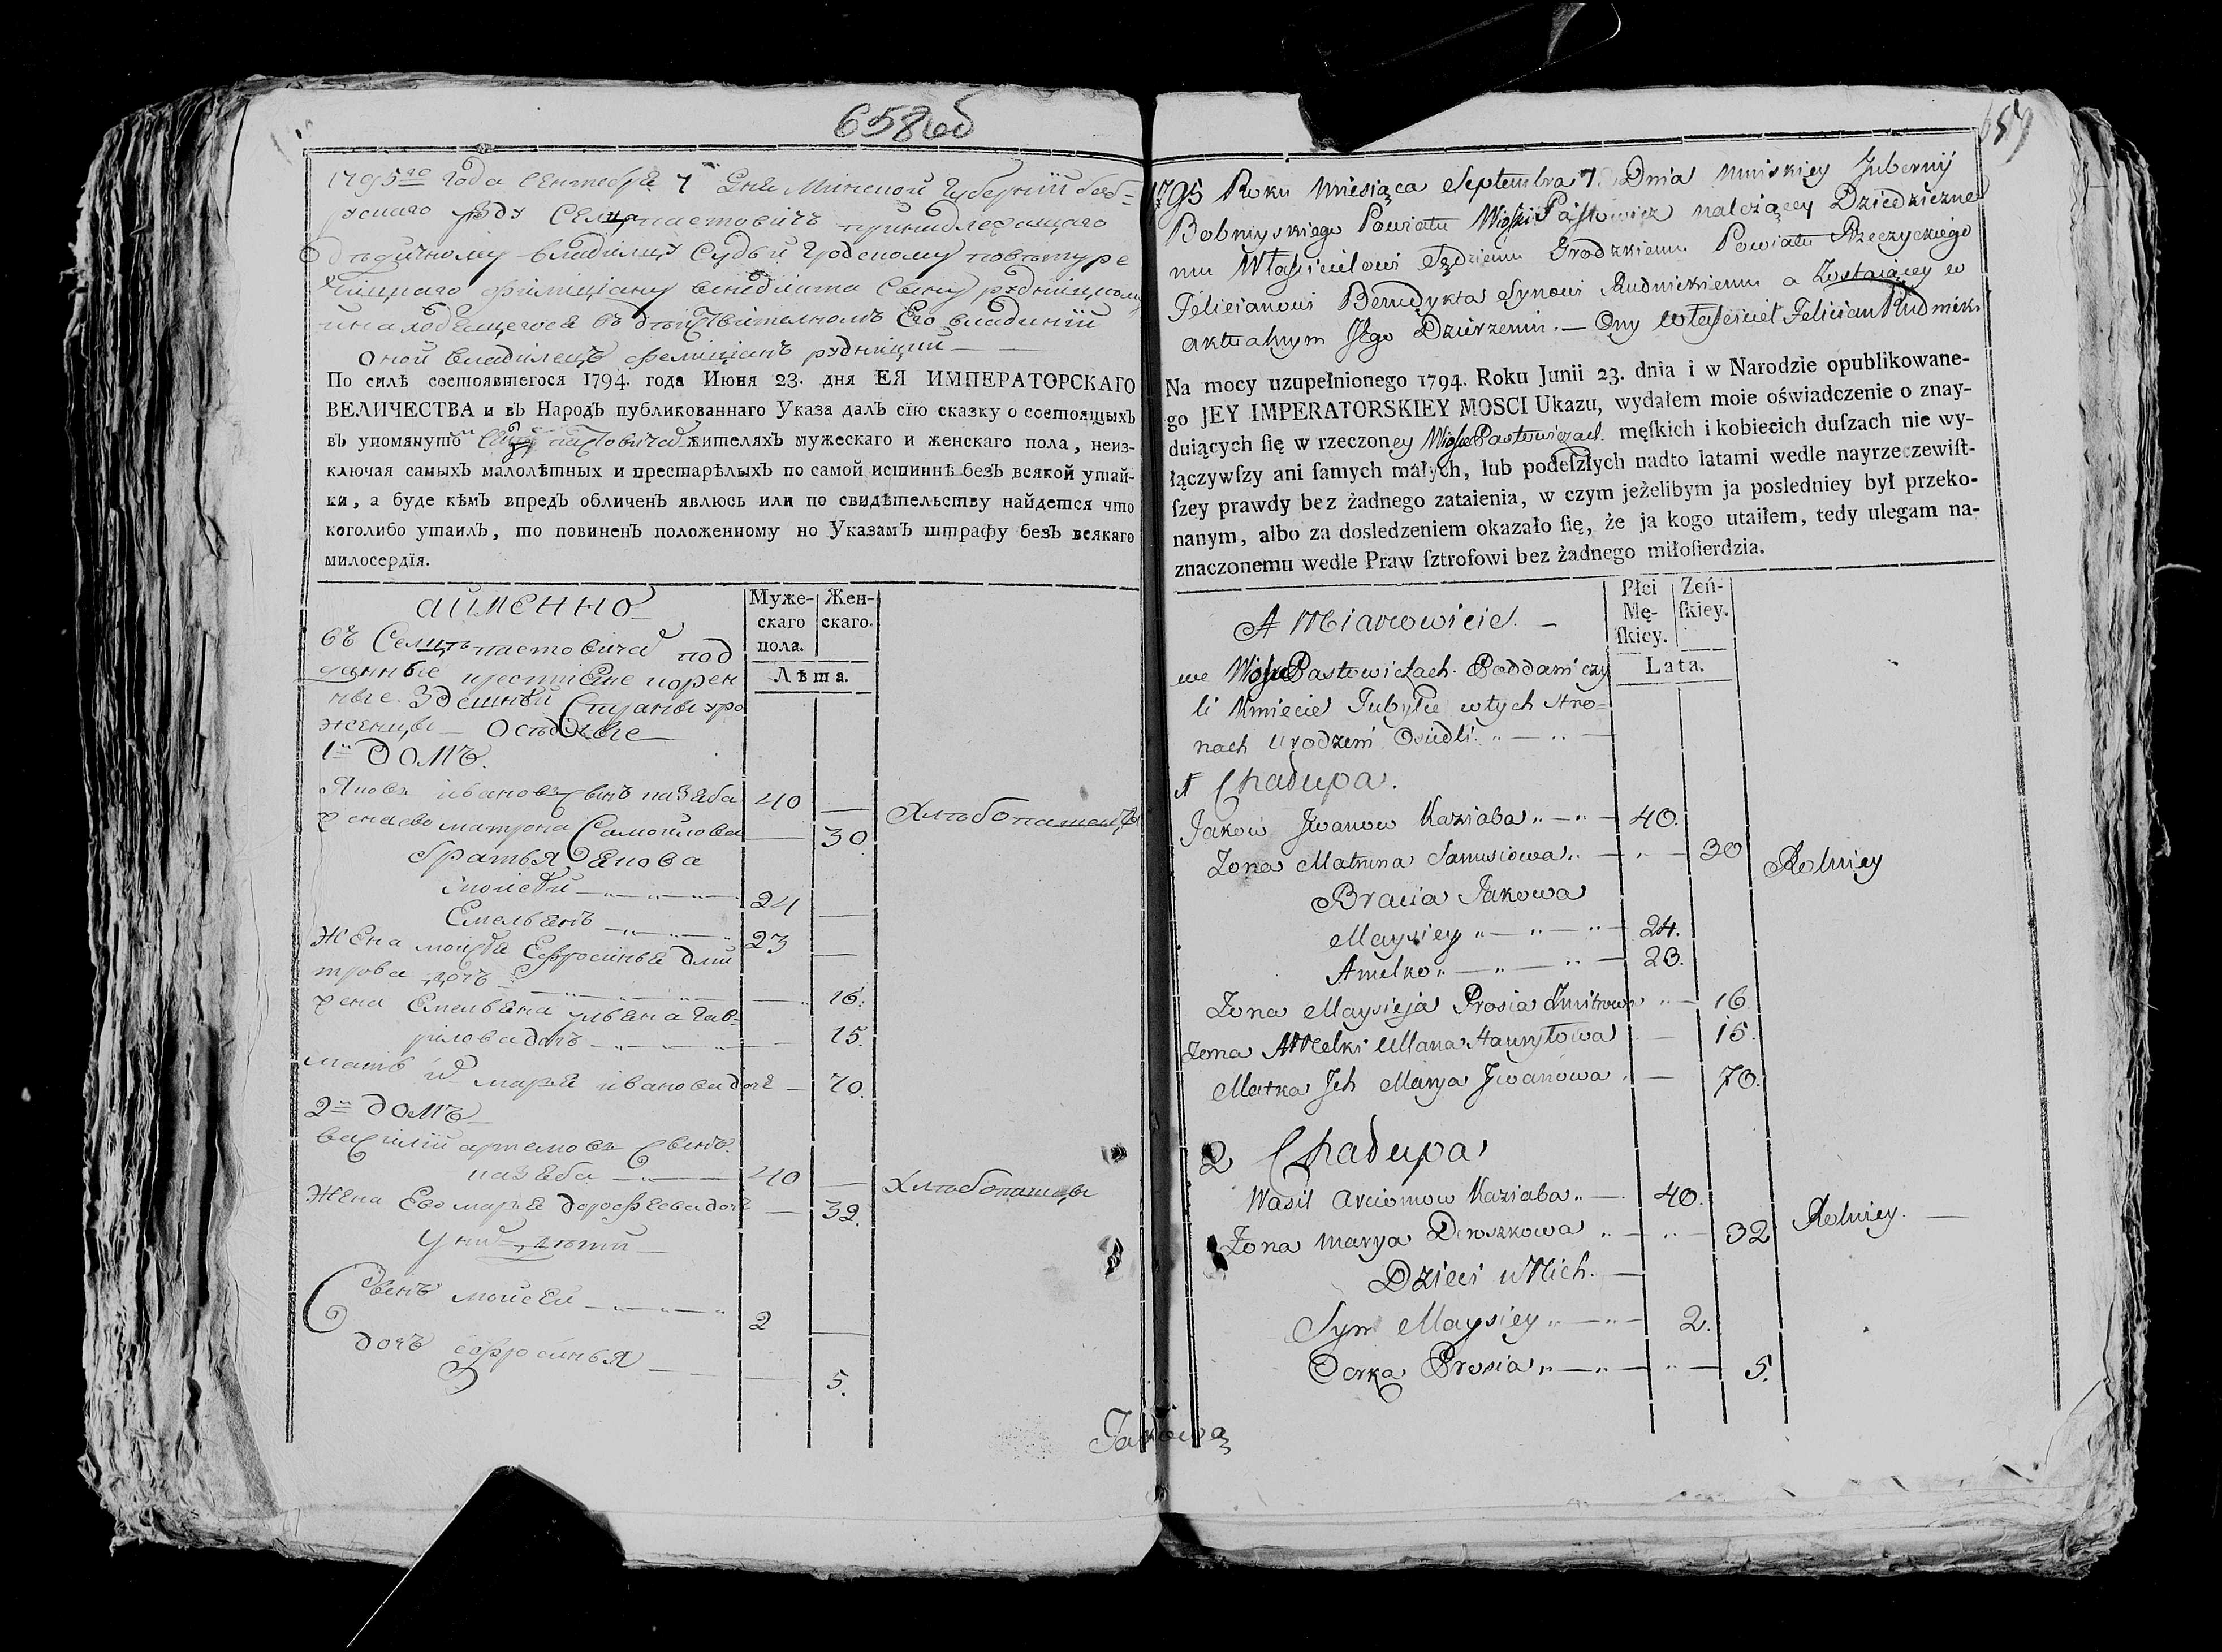 658 об
1795го Года Сентебря 7 Дня Минской Губернїи Боб-
уйскаго уѣзду пастовичъ принадлежащаго
дѣдичному владѣлцу Судьи Гродскому повѣту ре
чицкаго Фелициану венедикта Сыну рудницкому
и находещегося въ дѣйствителномъ Его владѣнїи
Оной владѣлецъ Фелициянъ рудницкий
По силѣ состоявшегося 1794. года Июня 23. дня ЕЯ ИМПЕРАТОРСКАГО
ВЕЛИЧЕСТВА и въ Народѣ публикованнаго Указа далъ сїю сказку о состоящыхъ
въ упомянуто пастовичах жителяхъ мужескаго и женскаго пола, неиз-
ключая самыхъ малолѣтныхъ и престарѣлыхъ по самой истиннѣ безъ всякой утай-
ки, а буде кѣмъ впредь обличенъ явлюсь или по свидѣтельству найдется что
коголибо утаилъ, то повиненъ положенному но Указамъ штрафу безъ всякаго
милосердїя.
аименно
Муже-
скаго
пола.
Жен-
скаго.
Лѣта.
въ пастовичах под
данные крестьяне корен
ные Здешней Страны уро
женцы Оседлые
1й домъ.
Яковъ ивановъ Сынъ казеба 40 — Хлѣбопашецы
жена ево матрона Самойлова — 30
братья Якова
Моисей 24 —
Емельянъ 23 —
Жена моисея Ефросинья дми
трова доч 16.
жена Емельяна ульяна гав-
рилова доч 15.
мать их марья иванова доч — 70.
2й домъ
василий артемовъ Сынъ
казеба 40 — Хлѣбопашцы
Жена Ево марья дорофеева доч — 32.
У них дети
Сынъ моисей 2 —
дочь ефросинья — 5.
659
1795 Roku Miesiąca Septembra 7. Dnia Minskiey Gubernij
Bobruyskiego Powiatu Wioski Pastowicz należącey Dziedziczne
mu Właścicielowi Sędziemu Grodzkiemu Powiatu Rzeczyckiego
Felicianowi Benedykta Synowi Rudnickiemu a Zostaiącey w
aktualnym Jego Dzierzeniu. — Ony właściciel Felician Rudnicki
Na mocy uzupełnionego 1794. Roku Junii 23. dnia i w Narodzie opublikowane-
go JEY IMPERATORSKIEY MOSCI Ukazu, wydałem moie oświadczenie o znay-
duiących ſię w rzeczoney Wiosce Pastowiczach męſkich i kobiecich duſzach nie wy-
łączywſzy ani ſamych małych, lub podeſzłych nadto latami wedle nayrzeczewiſt-
ſzey prawdy bez żadnego zataienia, w czym jeżelibym ja posledniey był przeko-
nanym, albo za dosledzeniem okazało ſię, że ja kogo utaiłem, tedy ulegam na-
znaczonemu wedle Praw ſztrofowi bez żadnego miłoſierdzia.
A Mianowicie. —
Płci
Mę-
ſkiey.
Zeń-
ſkiey.
Lata.
we Wiosce Pastowiczach. Poddani czy
li Kmiecie Tubylce w tych Stro-
nach Urodzeni Osiedli.
1 Chadupa.
Jakow Jwanow Kaziaba 40.
Zona Matruna Samusiowa 30 Rolnicy
Bracia Jakowa
Maysiey 24.
Amelko 23.
Zona Maysieja Prosia Dmitrowa 16.
Zona Amelki Ullana Hauryłowa 15.
Matka Jch Marya Jwanowa 70.
2 Chadupa
Wasil Arciomow Kaziaba 40. Rolnicy.
Zona Marya Doroszkowa 32
Dzieci u Nich.
Syn Maysiey 2.
Corka Prosia 5.
Jakowa